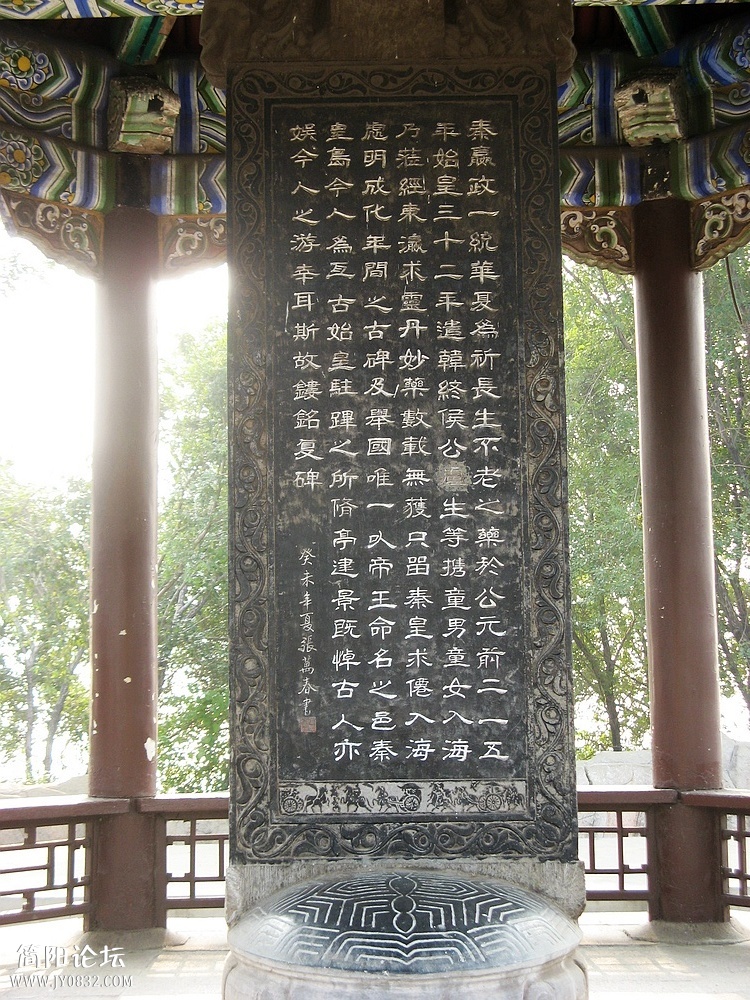 秦嬴政一統華夏為祈長生不老之藥於公元前二一五
年始皇三十二年遣韓終侯公盧生等携童男童女入海
乃莅經東瀛求靈丹妙藥數載無獲只畱秦皇求僊入海
處明成化年間之古碑及舉國唯一以帝王命名之邑秦
皇島今人為亙古始皇駐蹕之所脩亭建景既悼古人亦
娛今人之游幸耳斯故鏤銘复碑
癸未年夏張萬春書
简阳论坛
WWW.JY0832.COM